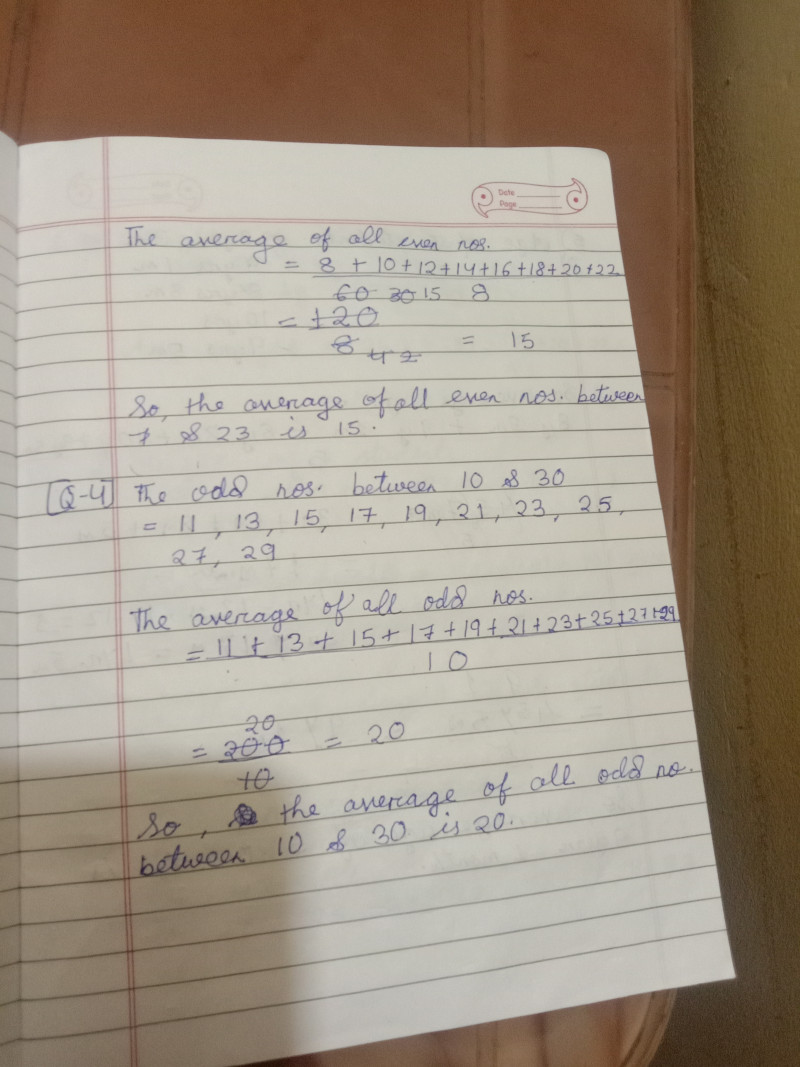 Date
Page
The average of all even nos.
= 8 + 10+12+14+16+18+20+22
60 30 15 8
= 120
8 4 2 = 15
So, the average of all even nos. between
7 & 23 is 15.
Q-4 The odd nos. between 10 & 30
= 11, 13, 15, 17, 19, 21, 23, 25,
27, 29
The average of all odd nos.
= 11 + 13 + 15 + 17 + 19 + 21 + 23 + 25 + 27 + 29
10
20
= 200 = 20
10
So, the average of all odd no.
between 10 & 30 is 20.